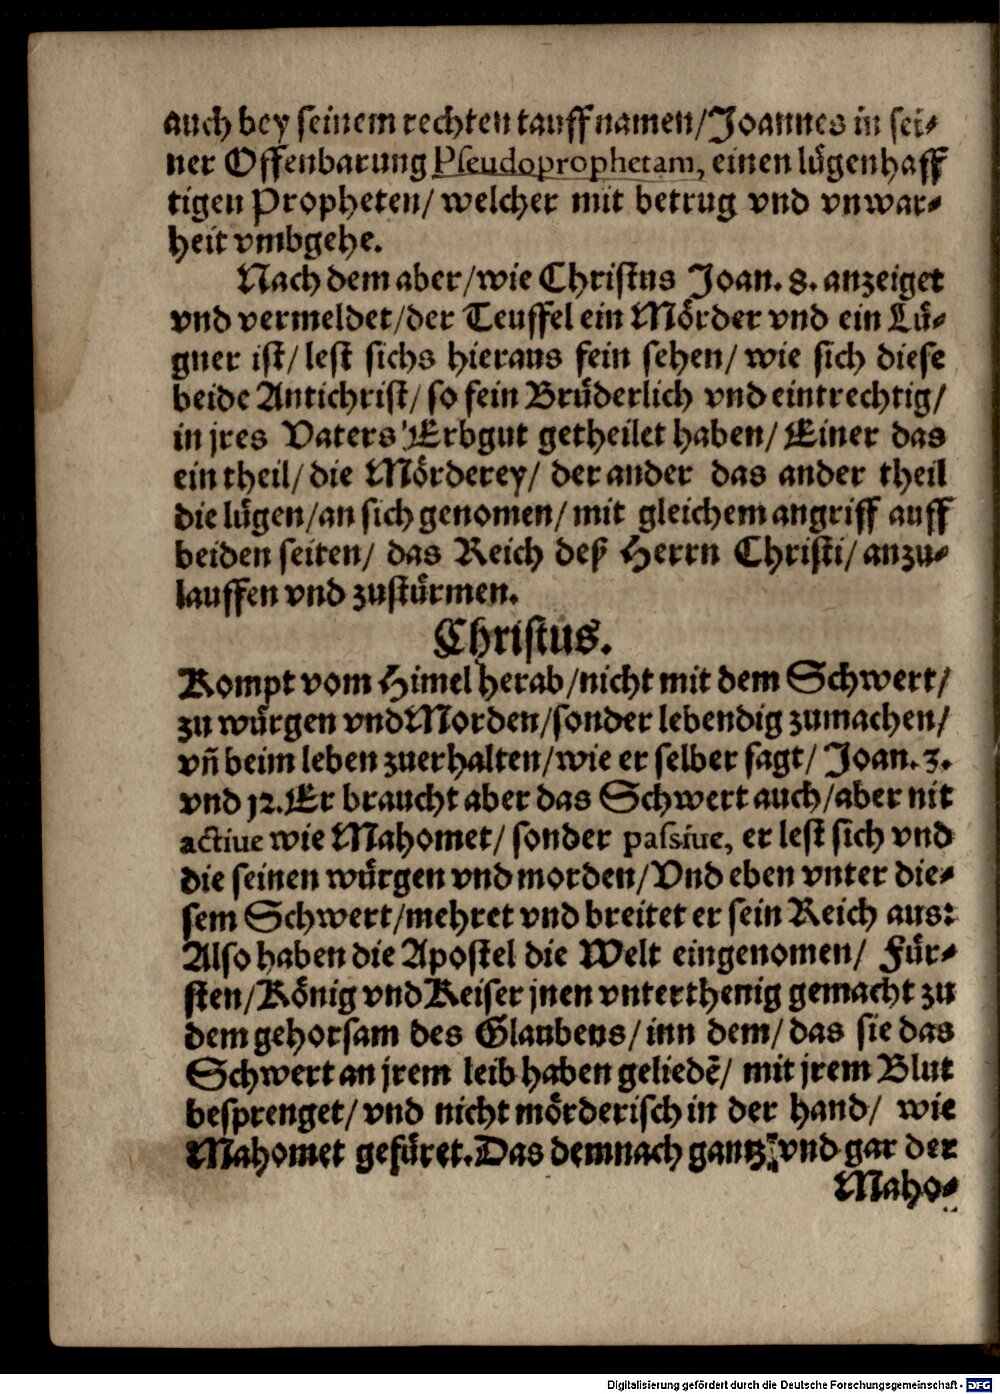 auch bey seinem rechten tauffnamen/Joannes in sei⸗
ner Offenbarung Pseudoprophetam, einen lügenhaff
tigen Propheten/ welcher mit betrug vnd vnwar⸗
heit vmbgehe.
Nach dem aber/wie Christus Joan. 8. anzeiget
vnd vermeldet/der Teuffel ein Mörder vnd ein Lü⸗
gner ist/ lest sichs hieraus fein sehen/ wie sich diese
beide Antichrist/ so fein Brüderlich vnd eintrechtig/
in jres Vaters Erbgut getheilet haben/ Einer das
ein theil/ die Mörderey/ der ander das ander theil
die lügen/an sich genomen/ mit gleichem angriff auff
beiden seiten/ das Reich deß Herrn Christi/ anzu⸗
lauffen vnd zustürmen.
Christus.
Kompt vom Himel herab/nicht mit dem Schwert/
zu würgen vnd Morden/sonder lebendig zumachen/
vñ beim leben zuerhalten/wie er selber sagt/ Joan. 3.
vnd 12. Er braucht aber das Schwert auch/aber nit
actiue wie Mahomet/ sonder passiue, er lest sich vnd
die seinen würgen vnd morden/Vnd eben vnter die⸗
sem Schwert/mehret vnd breitet er sein Reich aus:
Also haben die Apostel die Welt eingenomen/ Für⸗
sten/König vnd Keiser jnen vnterthenig gemacht zu
dem gehorsam des Glaubens/ inn dem/ das sie das
Schwert an jrem leib haben geliedē/ mit jrem Blut
besprenget/ vnd nicht mörderisch in der hand/ wie
Mahomet gefüret. Das demnach gantz vnd gar der
Maho⸗
Digitalisierung gefördert durch die Deutsche Forschungsgemeinschaft - DFG